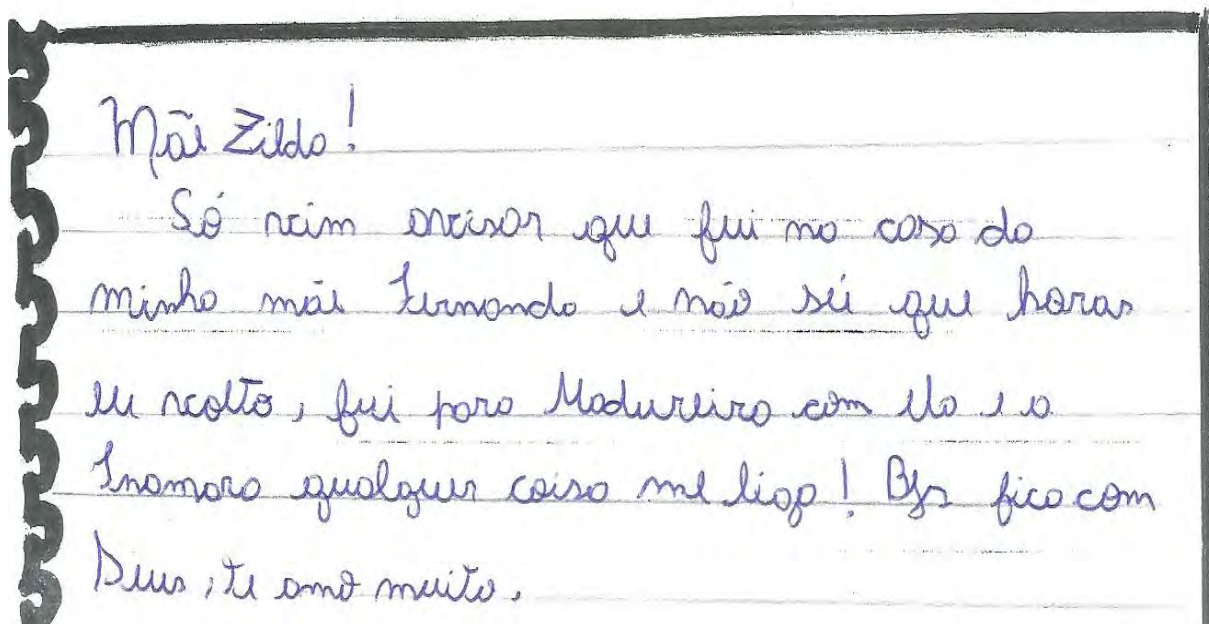 Mãe Zilda!
Só vim avisar que fui na casa da
minha mãe Fernanda e não sei que horas
eu volto, fui para Madureira com ela e a
Inamara qualquer coisa me liga! Bjs fica com
Deus, te amo muito.